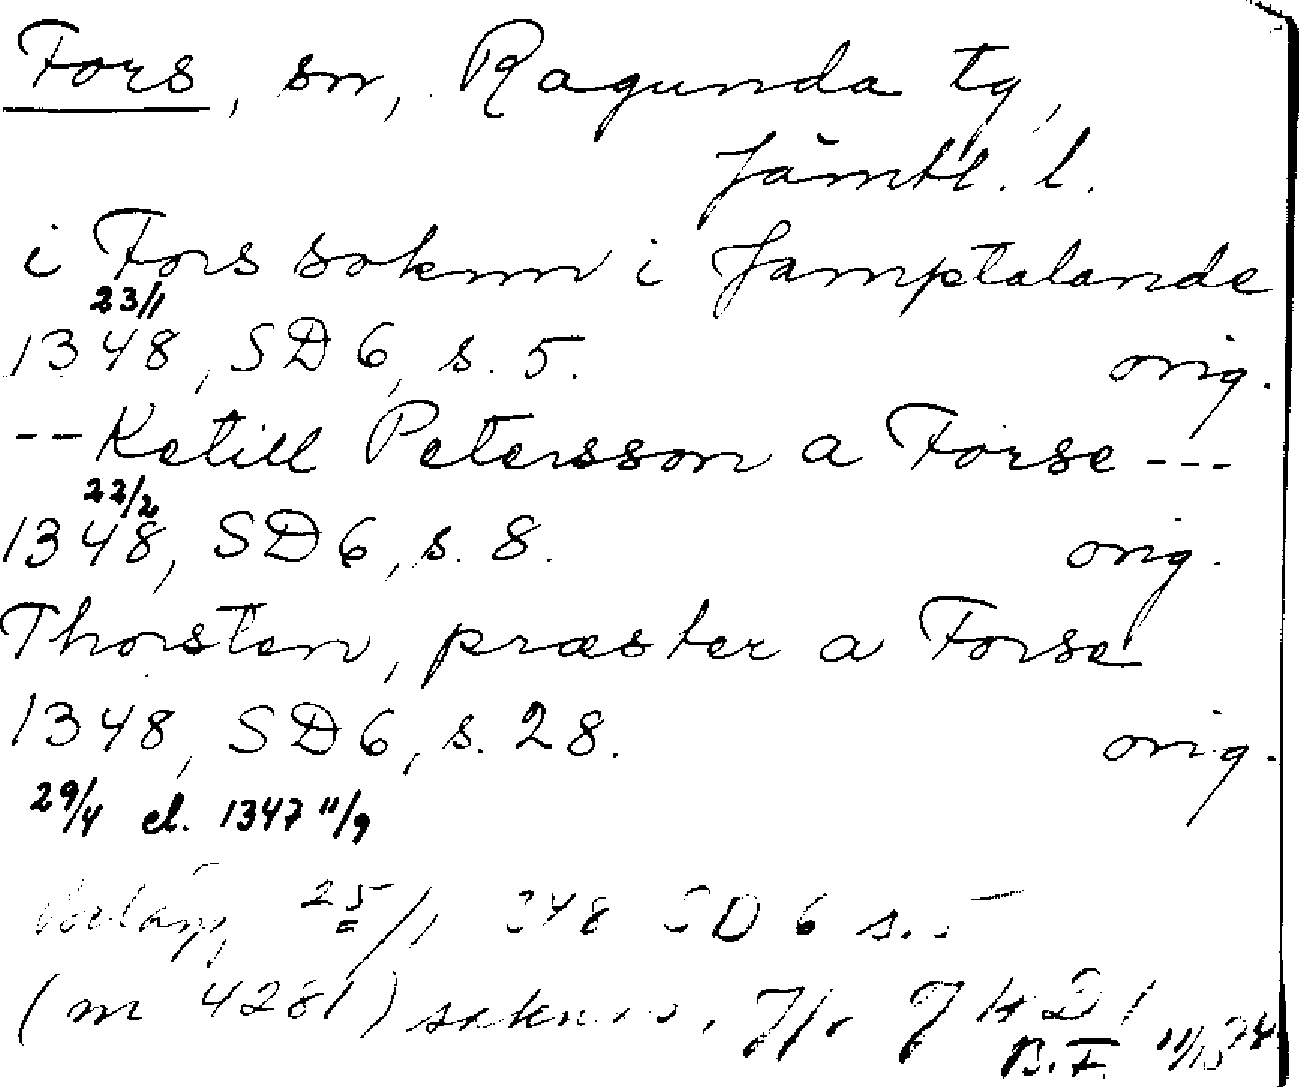 Fors, sn, Ragunda tg,
Jämtl. l.
i Fors soknn i Jamptalande
23/1
1348, SD 6, s. 5. orig.
-- Ketill Petersson a Forse ---
22/2
1348, SD 6, s. 8. orig.
Thorsten, præster a Forse
1348, SD 6, s. 28. orig.
29/4 el. 1347 11/9
25/1 348 SD 6 s. 5
(nr 4281) saknas. Jfr J H D 1
B.F.